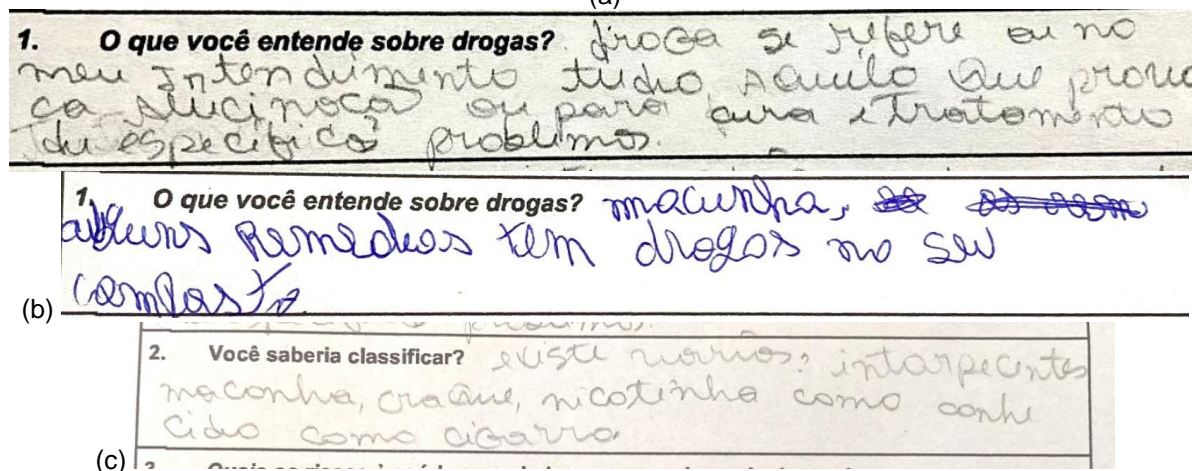 (a)
1. O que você entende sobre drogas? droga se refere eu no
meu Intendimento tudo Aquilo Que provo
ca alucinoca ou para cura e Tratomento
de especificos problemos.
1. O que você entende sobre drogas? macunha,
alguns Remedios tem drogas no seu
(b) compostro
2. Você saberia classificar? existe varios: intorpecentes
maconha, craque, nicotinha como conhe
cido como cigarro
(c) 3.